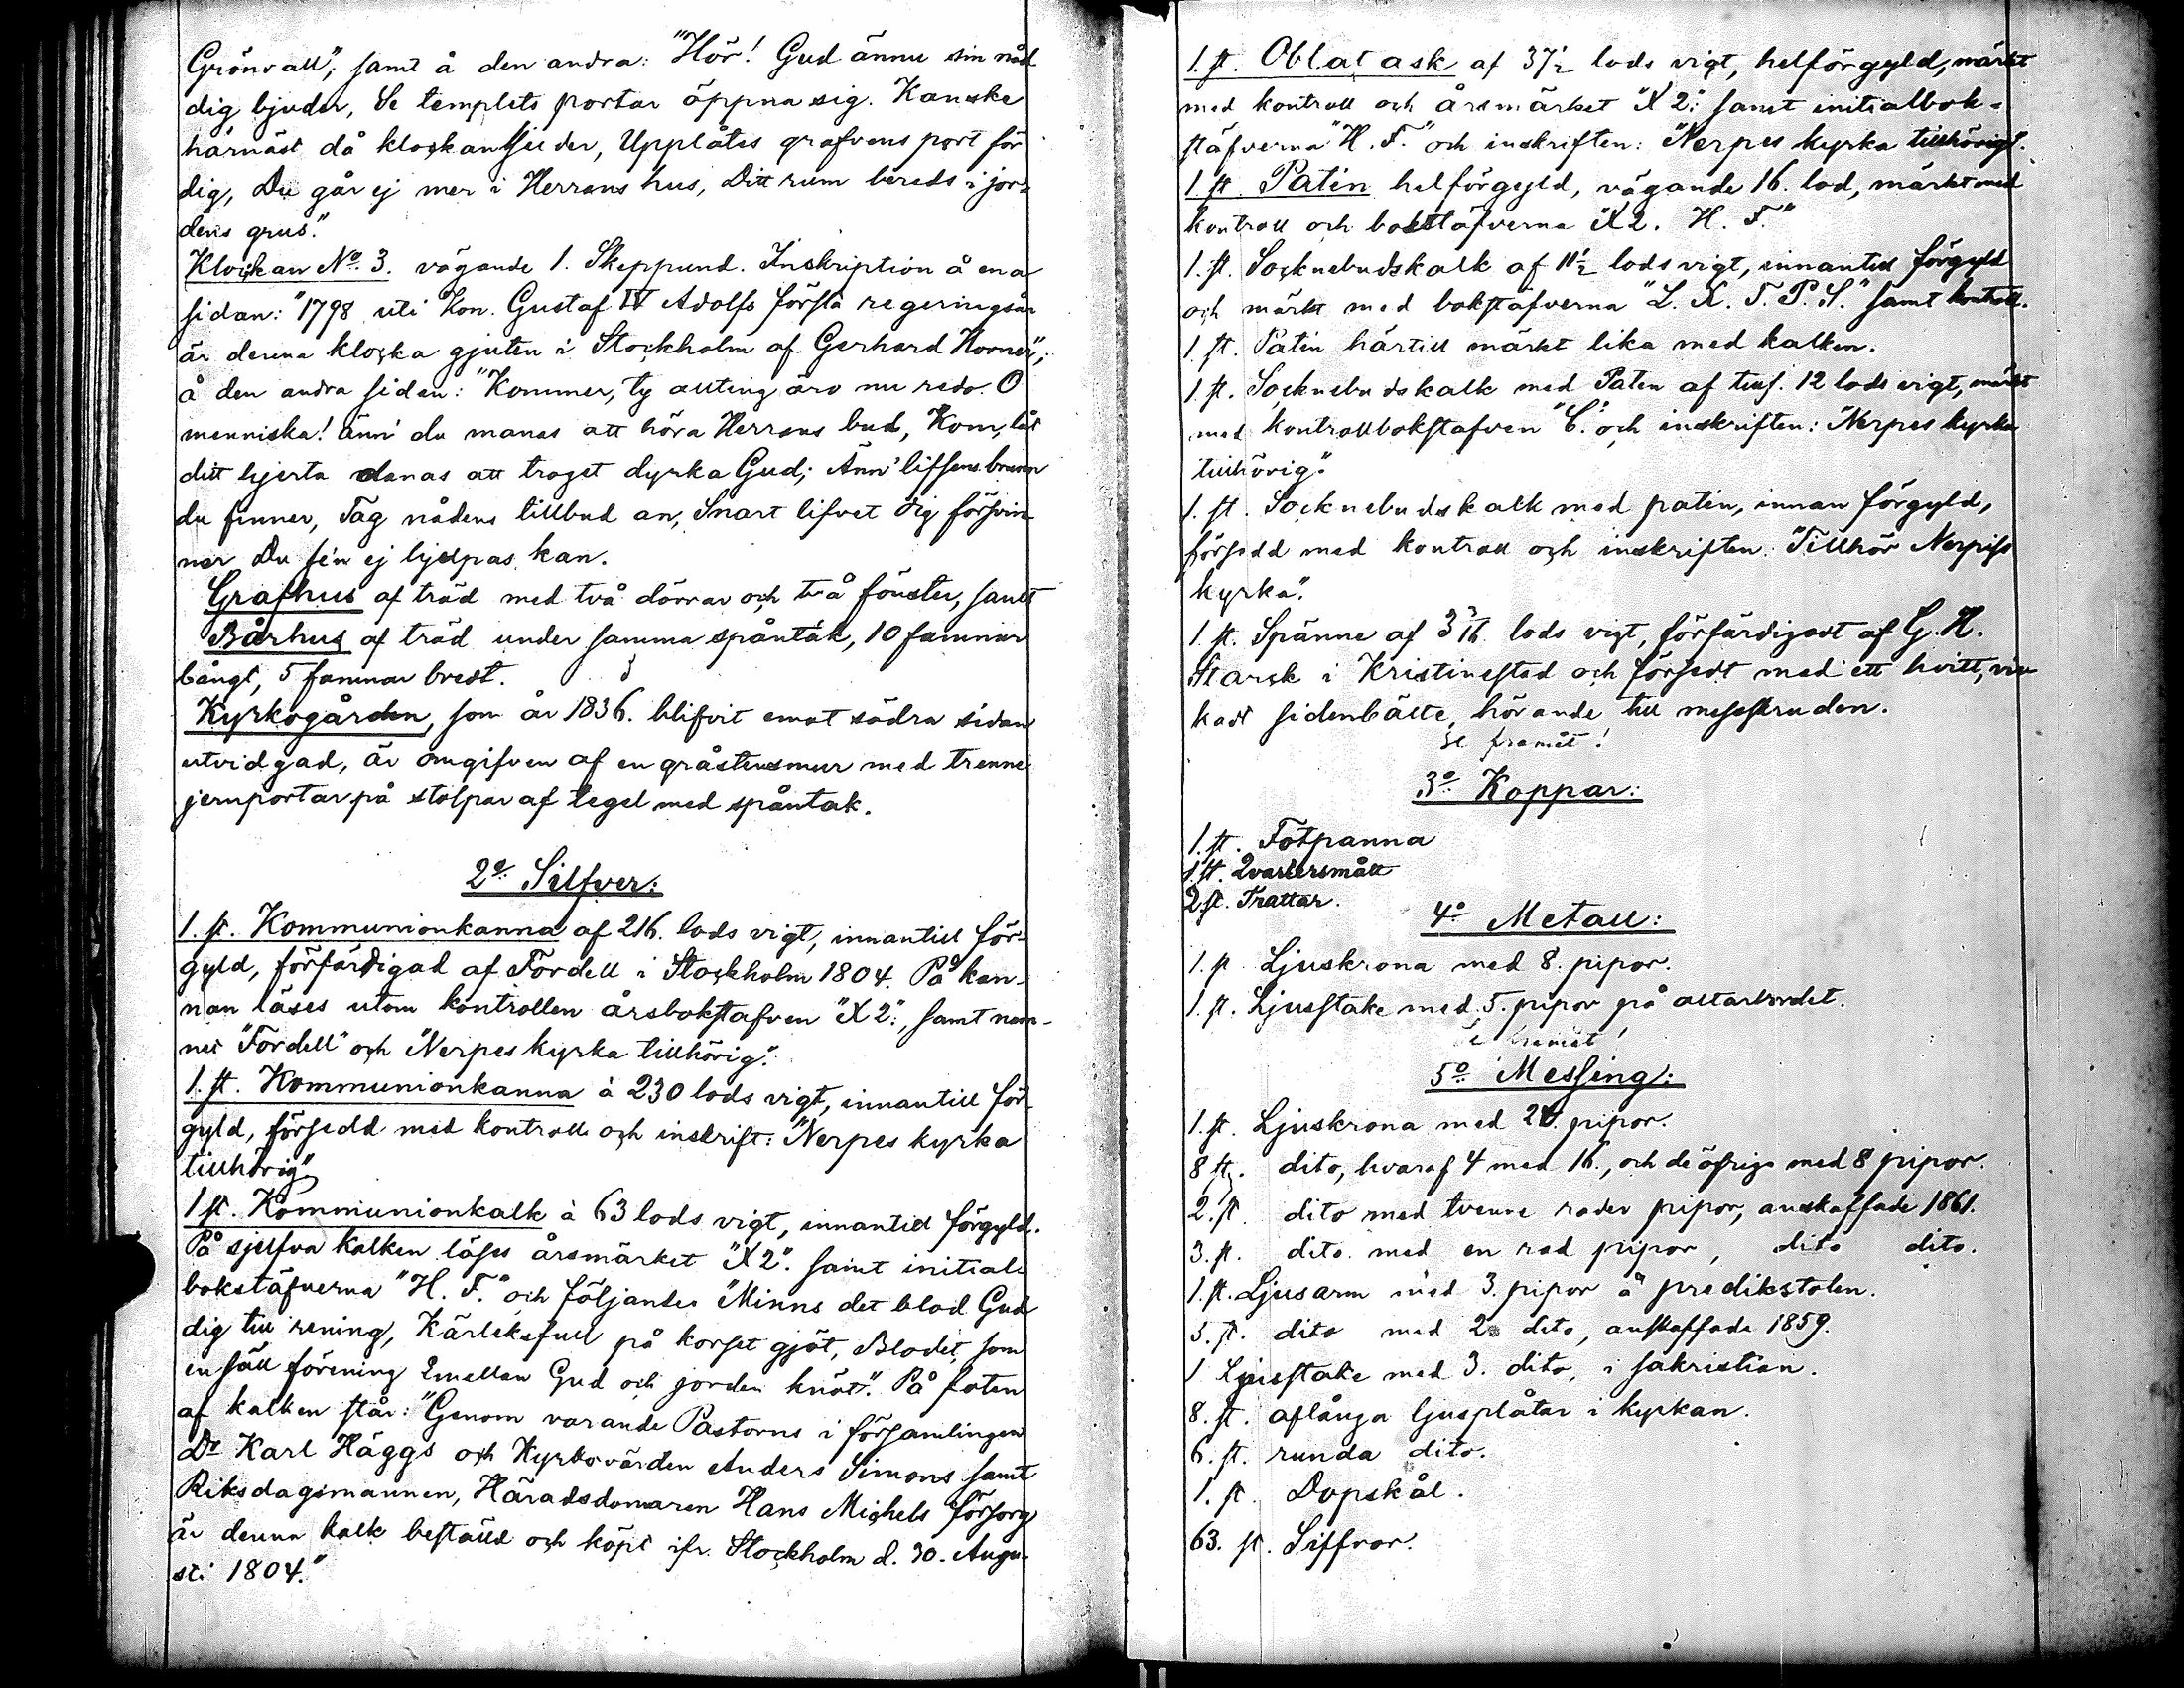 Grönvall", samt å den andra: "Hör! Gud ännu sin nåd
dig bjuder, Se templets portar öppna sig. Kanske
härnäst då klockan ljuder, Upplåtes grafvens port för
dig, Du går ej mer i Herrans hus, Ditt rum bereds i jor-
dens grus."
Klockan No. 3. vägande 1. Skeppund. Inskription å ena
sidan: "1798 uti Kon. Gustaf IV Adolfs första regeringsår
är denna klocka gjuten i Stockholm af Gerhard Horner",
å den andra sidan: "Kommer, ty allting äro nu redo. O
menniska! änn' du manas att höra Herrans bud, Kom, låt
ditt hjerta danas att troget dyrka Gud; Änn' lifsens brunn
du finner, Tag nådens tillbud an, Snart lifvet dig försvin-
ner Du se'n ej hjelpas kan.
Grafhus af träd med två dörrar och två fönster, samt
Bårhus af träd under samma spåntak, 10 famnar
långt, 5 famnar bredt.
Kyrkogården, som år 1836. blifvit emot södra sidan
utvidgad, är omgifven af en gråstensmur med trenne
jernportar på stolpar af tegel med spåntak.
2o. Silfver:
1. st. Kommunionkanna af 216. lods vigt, innantill för-
gyld, förfärdigad af Fordell i Stockholm 1804. På kan-
nan läses utom kontrollen årsbokstafven "X 2:, samt nam-
net "Fordell" och "Nerpes kyrka tillhörig".
1. st. Kommunionkanna à 230 lods vigt, innantill för-
gyld, försedd med kontroll och inskrift: "Nerpes kyrka
tillhörig"
1 st. Kommunionkalk à 63 lods vigt, innantill förgyld.
På sjelfva kalken läses årsmärket "X 2". samt initial-
bokstäfverna "H. F." och följande: "Minns det blod Gud
dig till rening, Kärleksfull på korset gjöt, Blodet, som
en säll förening Emellan Gud och jorden knöt". På foten
af kalken står: "Genom varande Pastorns i församlingen
Dr Karl Häggs och Kyrkovärden Anders Simons samt
Riksdagsmannen, Häradsdomaren Hans Michels försorg
är denna kalk beställd och köpt ifr. Stockholm d. 30. Augu-
sti 1804."
1. st. Oblatask af 37 1/2 lods vigt, helförgyld, märkt
med kontroll och årsmärket "X 2:" samt initialbok-
stäfverna "H. F." och inskriften: "Nerpes kyrka tillhörigt.
1 st. Patén helförgyld, vägande 16. lod, märkt med
kontroll och bokstäfverna "X 2. H. F."
1. st. Socknebudskalk af 11 1/2 lods vigt, innantill förgyld
och märkt med bokstäfverna "L. X. T. P. S." samt kontroll.
1 st. Patén härtill märkt lika med kalken.
1. st. Socknebudskalk med Patén af tills. 12 lods vigt, märkt
med kontrollbokstafven "C." och inskriften: "Nerpes kyrka
tillhörig".
1. st. Socknebudskalk med patén, innan förgyld,
försedd med kontroll och inskriften: "Tillhör Nerpiss
kyrka".
1. st. Spänne af 3 3/16. lods vigt, förfärdigadt af G. H.
Starck i Kristinestad och försedt med ett hvitt, vir-
kadt sidenbälte, hörande till messskruden.
Se framåt!
3o. Koppar:
1. st. Fotpanna
1 st. Qvartersmått
2 st. Trattar.
4o Metall:
1. st. Ljuskrona med 8. pipor.
1. st. Ljusstake med 5. pipor på altarbordet.
Se framåt!
5o. Messing:
1. st. Ljuskrona med pipor.
8 st. dito, hvaraf 4 med 16., och de öfriga med 8 pipor.
2. st. dito med tvenne rader pipor, anskaffade 1861.
3. st. dito. med en rad pipor, dito dito.
1. st. Ljusarm med 3. pipor å predikstolen.
3. st. dito med 2 dito, anskaffade 1859.
1 Ljusstake med 3. dito, i sakristian.
8. st. aflånga ljusplåtar i kyrkan.
6. st. runda dito.
1. st. Dopskål.
63. st. Siffror.